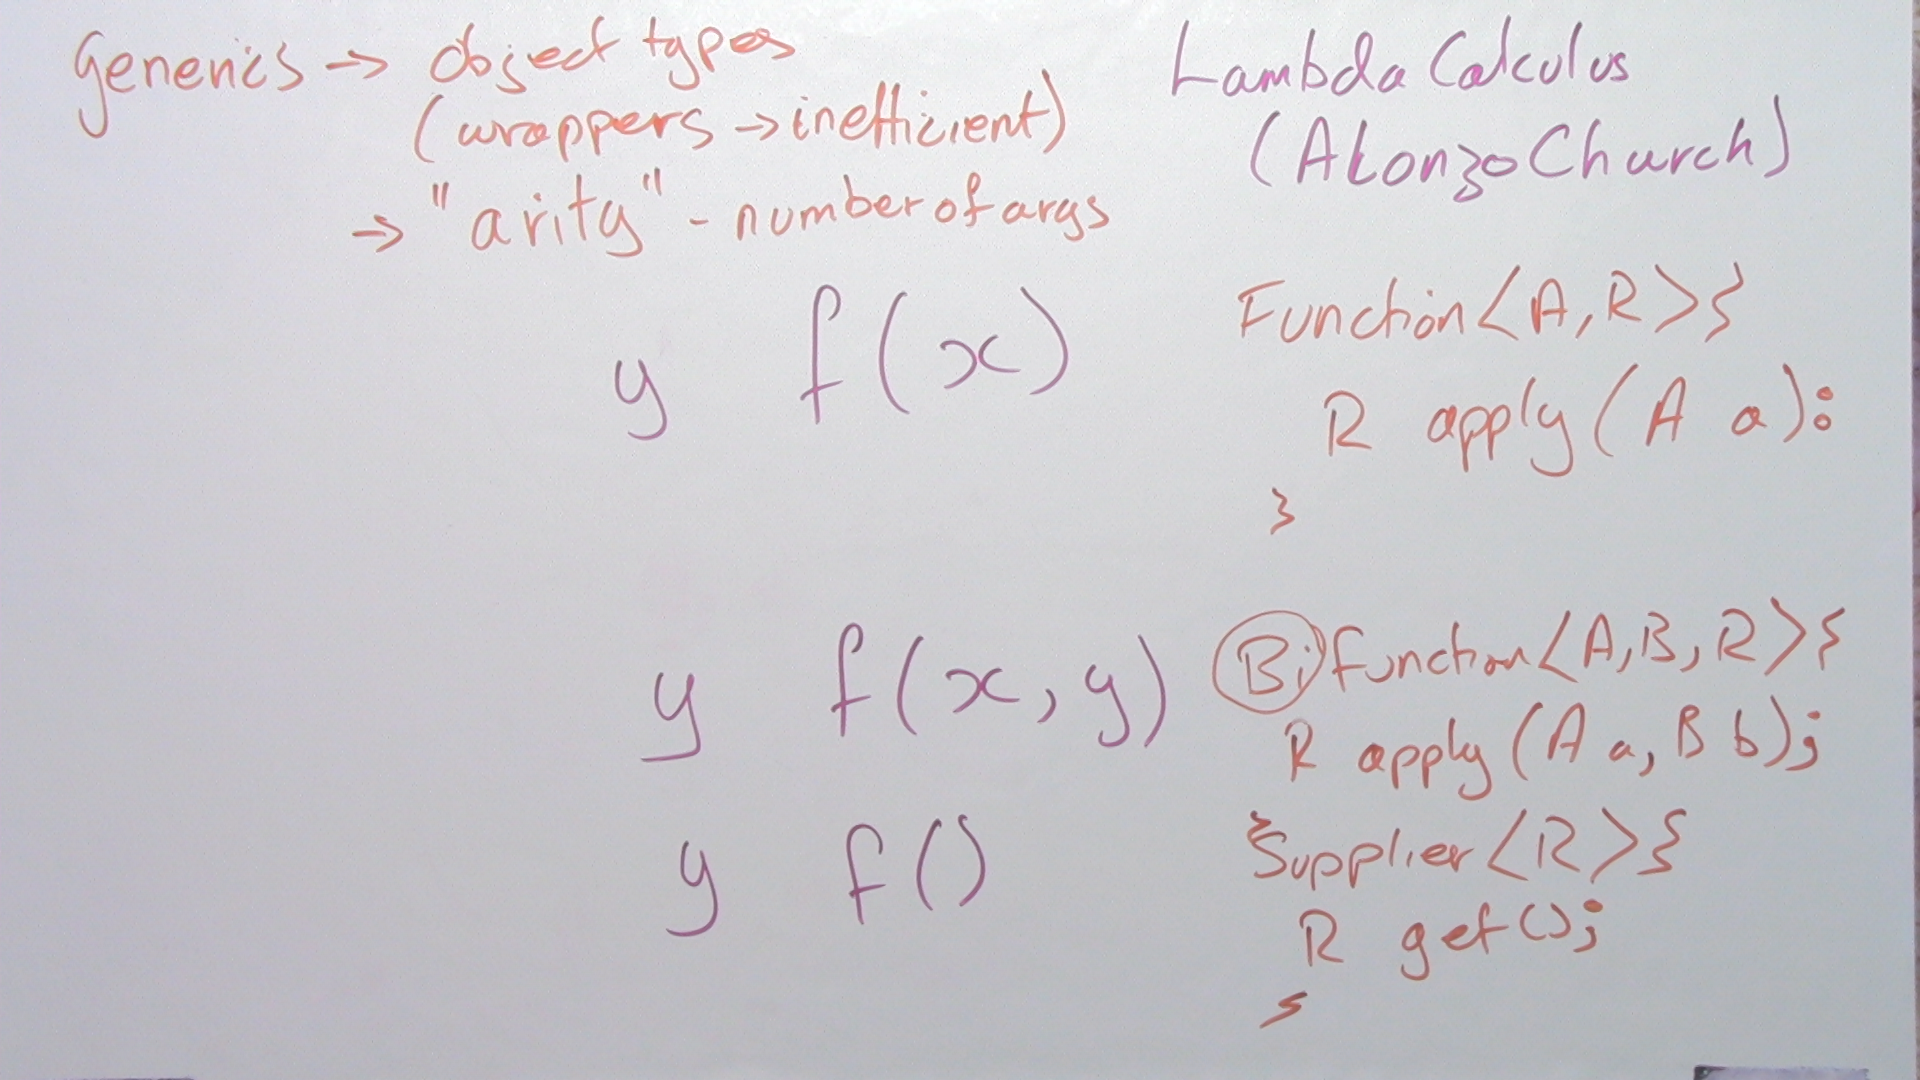 Generics → object types
(wrappers → inefficient)
→ "arity" - number of args
Lambda Calculus
(Alonzo Church)
y f(x)
Function<A,R>{
R apply(A a);
}
y f(x,y)
Bifunction<A,B,R>{
R apply(A a, B b);
}
y f()
Supplier<R>{
R get();
}